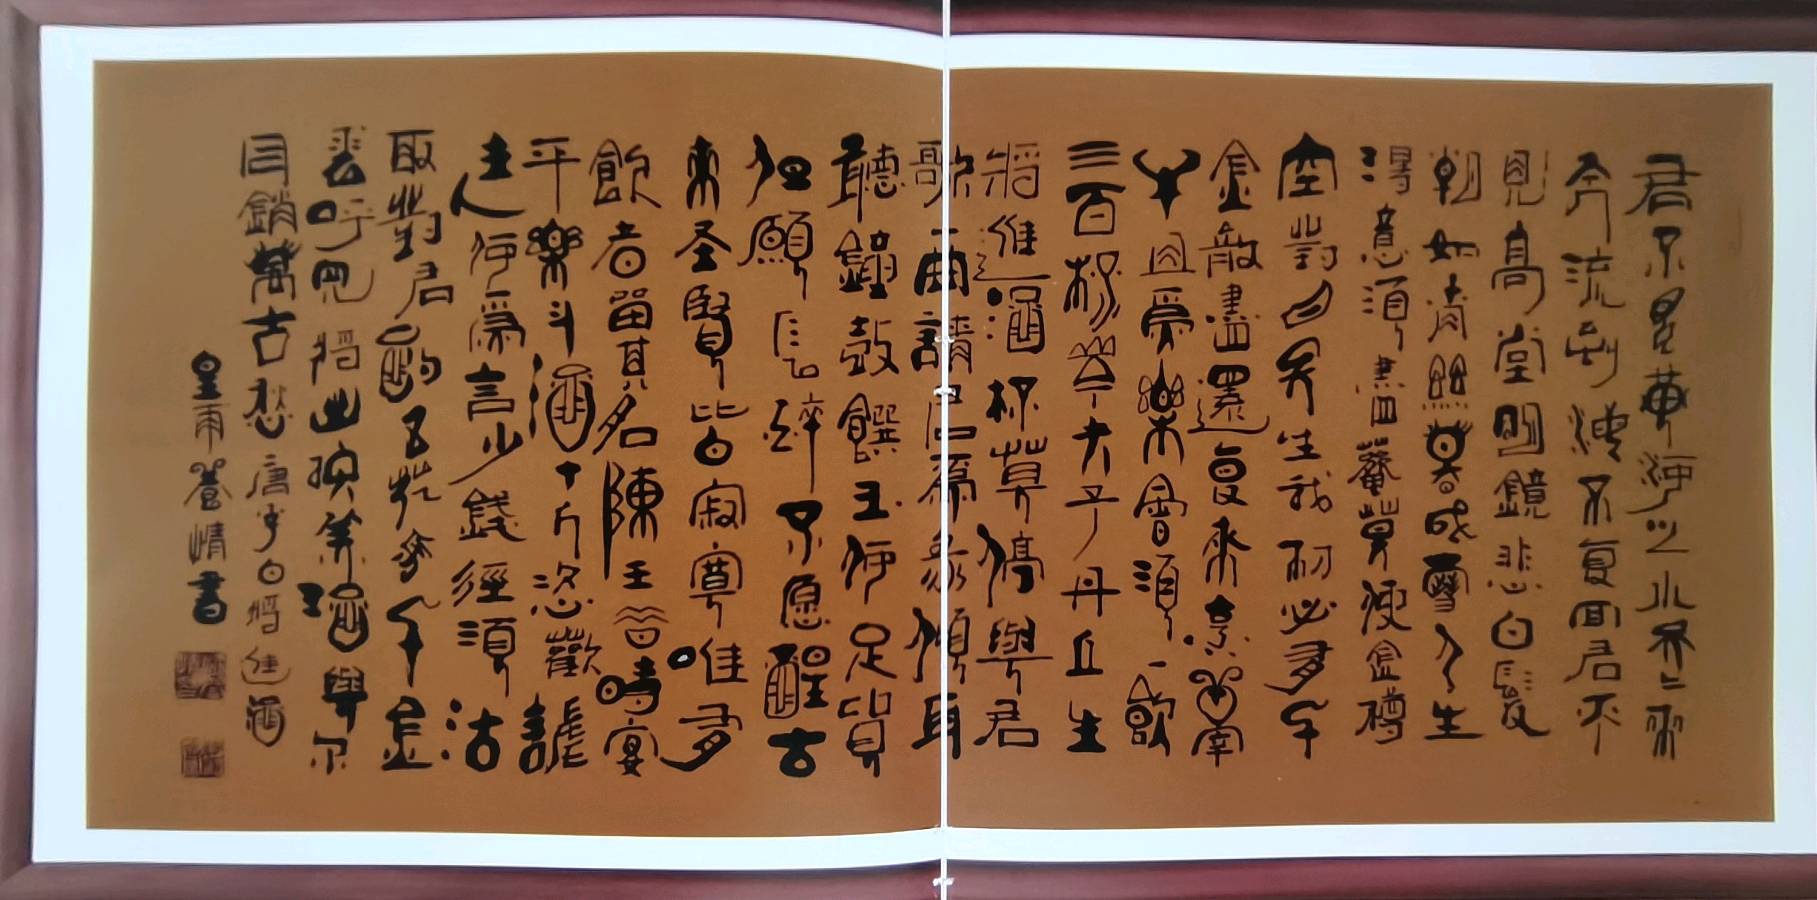 君不見黄河之水天上來
奔流到海不復回君不
見高堂明鏡悲白髮
朝如青絲暮成雪人生
得意須盡歡莫使金樽
空對月天生我材必有千
金散盡還復來烹羊宰
牛且為樂會須一飲
三百杯岑夫子丹丘生
將進酒杯莫停與君
歌一曲請君為我傾耳
聽鐘鼓饌玉何足貴
但願長醉不愿醒古
來圣賢皆寂寞唯有
飲者留其名陳王昔時宴
平樂斗酒十千恣歡謔
主人何為言少錢徑須沽
取對君酌五花馬千金
裘呼兒將出換美酒與尔
同銷萬古愁唐李白將進酒
皇甫養書